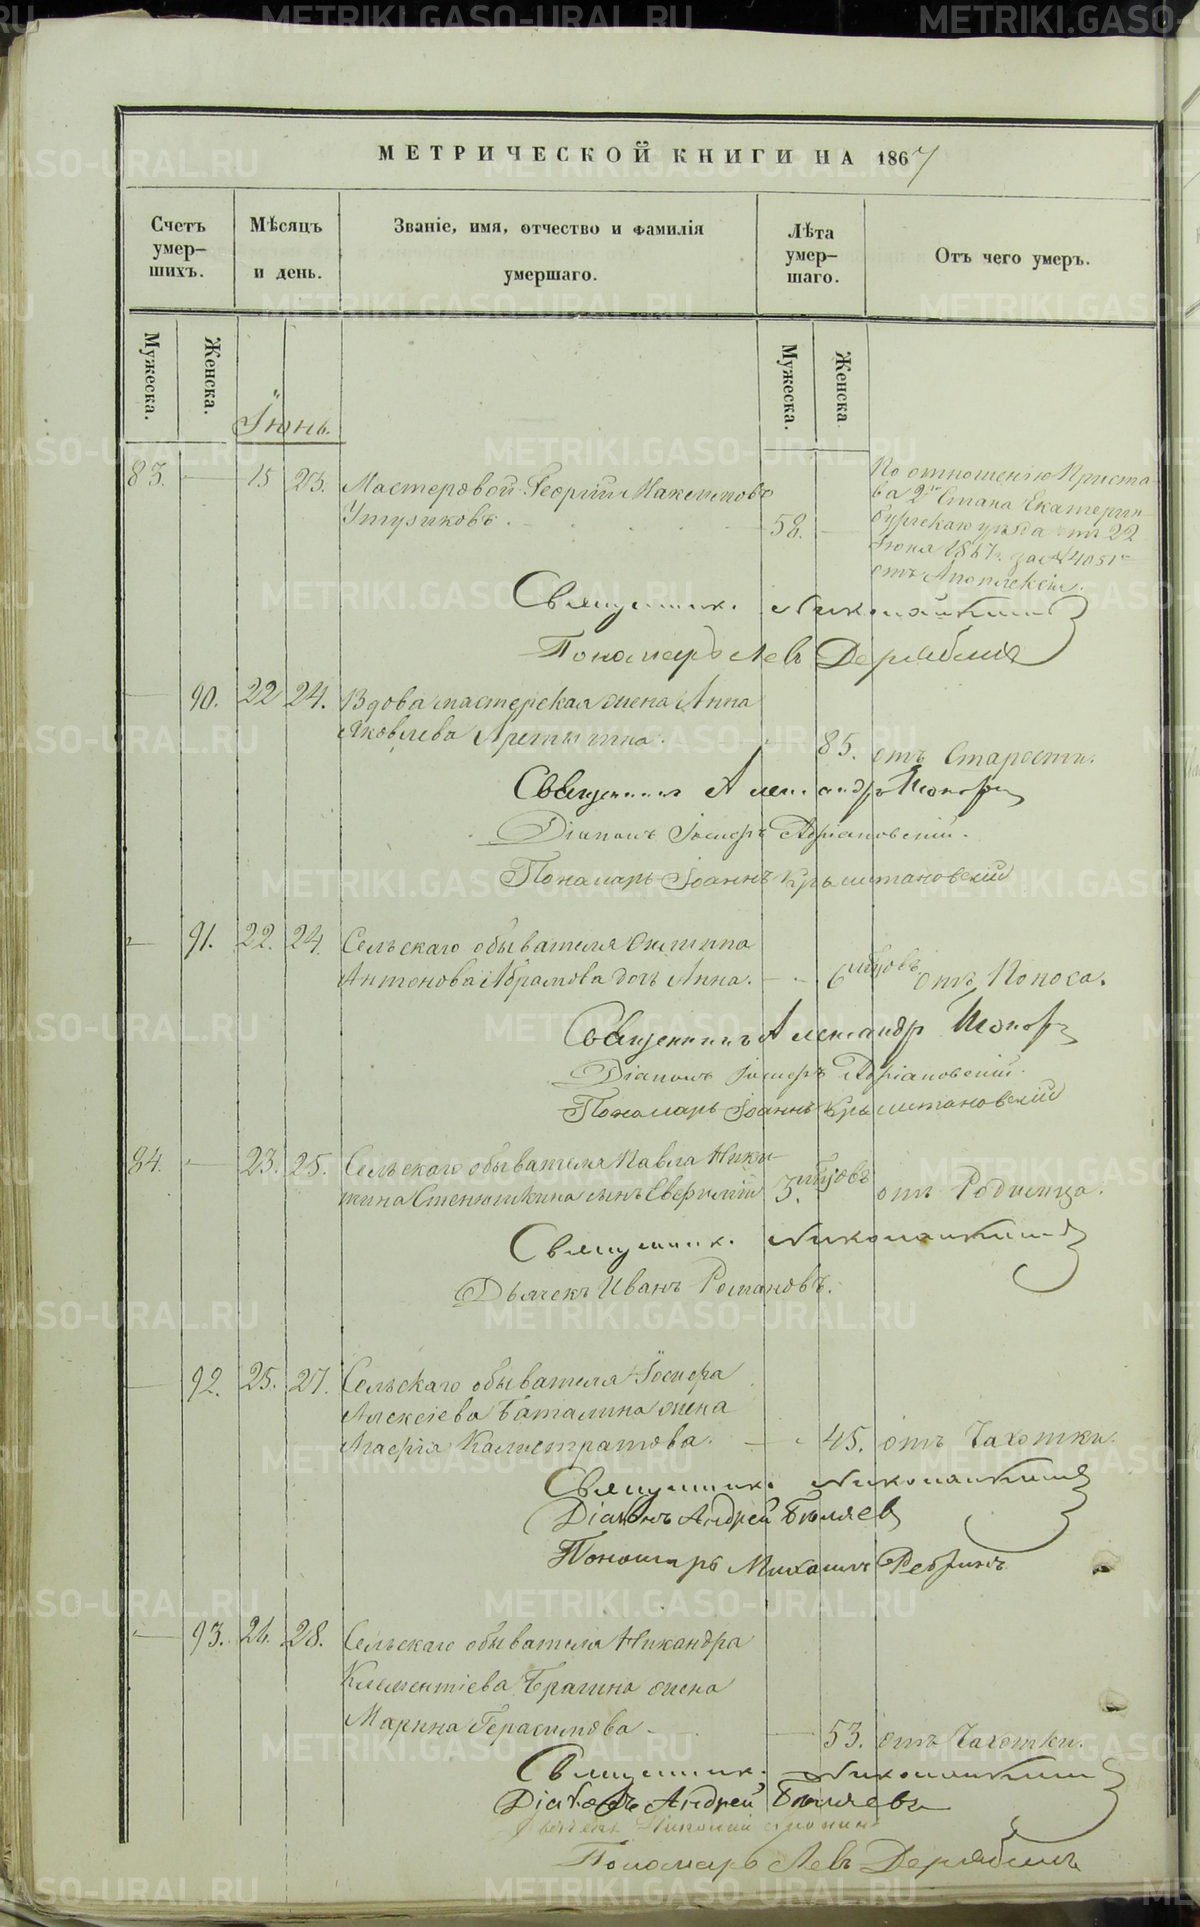 МЕТРИЧЕСКОЙ КНИГИ НА 1867
Счетъ умер-шихъ.
Мѣсяцъ и день.
Званіе, имя, отчество и фамилія умершаго.
Лѣта умер-шаго.
Отъ чего умеръ.
Мужеска.
Женска.
Мужеска.
Женска
Іюнь.
83. 15 23. Мастеровой Георгій Максимовъ
58.
По отношенію Приста-
ва 2го Стана Екатерин-
бургскаго уѣзда отъ 22
Іюня 1867 г. за № 4051
отъ Апоплексіи.
Священникъ
Пономарь Левъ Дерябинъ
90. 22 24. Вдова мастерская жена Анна
Яковлева 85. отъ Старости.
Священникъ Александръ
Діаконъ Іосифъ Адріановскій.
Пономарь Іоаннъ
91. 22. 24. Сельскаго обывателя Филиппа
Антонова Абрамова дочь Анна. 6 мѣсяцовъ отъ Поноса.
Священникъ Александръ
Діаконъ Іосифъ Адріановскій.
Пономарь Іоаннъ
84. 23. 25. Сельскаго обывателя Павла Ники-
тина Стенюшкина сынъ 3. мѣсяцовъ отъ Родимца.
Священникъ
Дьячекъ Иванъ Романовъ.
92. 25. 27. Сельскаго обывателя Іосифа
Алексіева Баталина жена
Агафія Калистратова. 45. отъ Чахотки.
Священникъ
Діаконъ Андрей Бѣляевъ
Пономарь Михаилъ Ребринъ
93. 26. 28. Сельскаго обывателя Никандра
Климентіева Брагина жена
Марина Герасимова. 53. отъ Чахотки.
Священникъ
Діаконъ Андрей Бѣляевъ
Пономарь Левъ Дерябинъ
METRIKI.GASO-URAL.RU